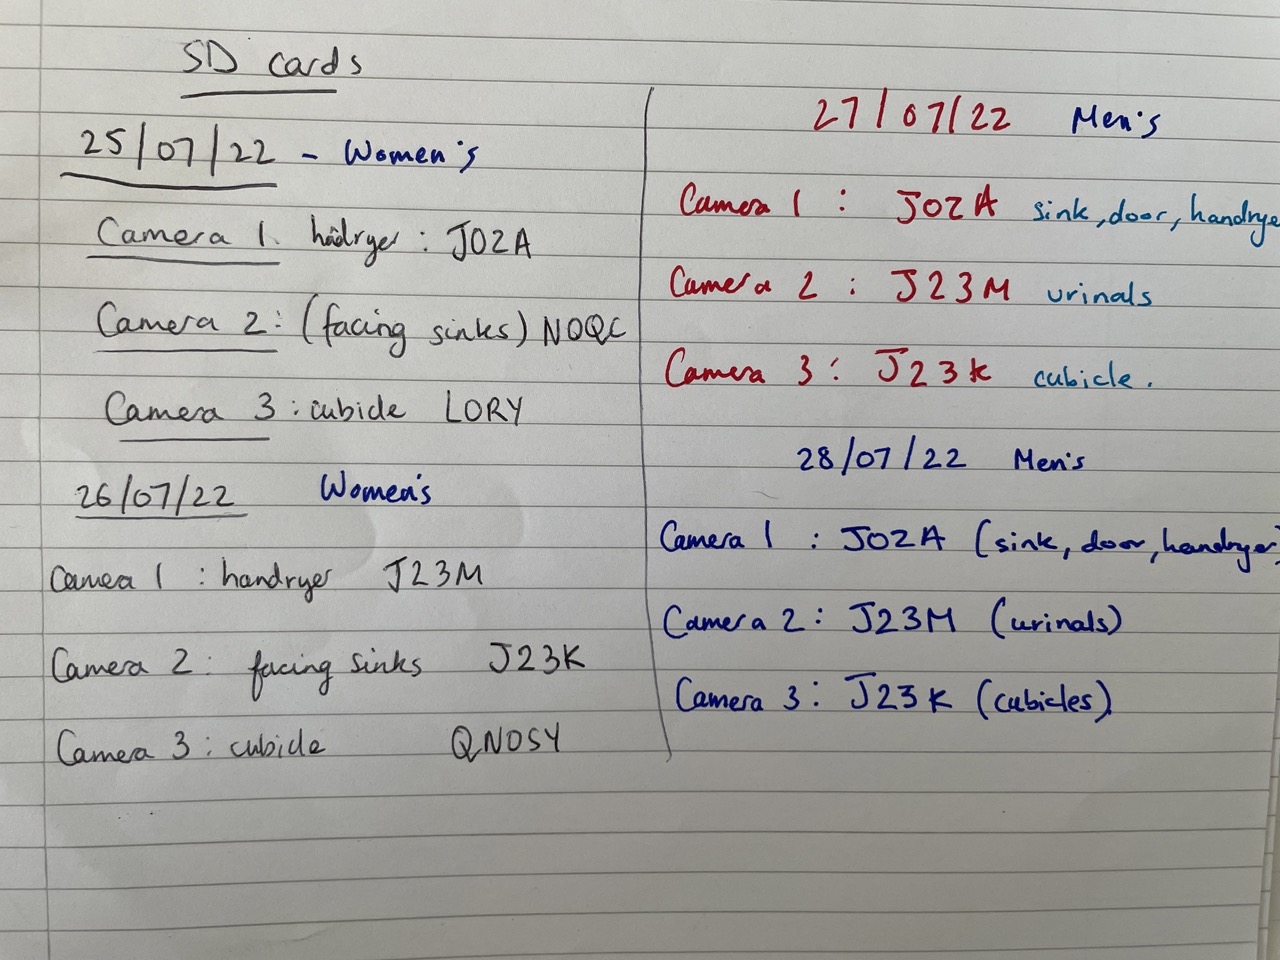 SD cards
25/07/22 - Women's
Camera 1. hadryer : J02A
Camera 2: (facing sinks) N0QC
Camera 3 : cubicle L0RY
26/07/22 Women's
Camea 1 : handryer J23M
Camera 2: facing sinks J23K
Camera 3 : cubicle QN0SY
27/07/22 Men's
Camera 1 : J02A sink, door, handrye
Camera 2 : J23M urinals
Camera 3 : J23K cubicle.
28/07/22 Men's
Camera 1 : J02A (sink, door, handryer)
Camera 2 : J23M (urinals)
Camera 3 : J23K (cubicles)